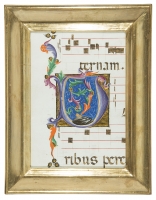 ternam.
ribus pere